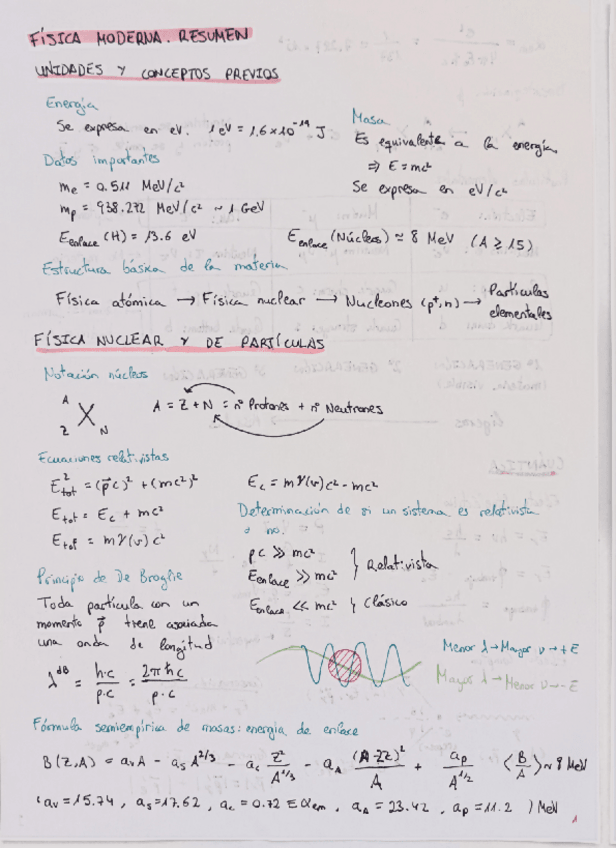 FÍSICA MODERNA. RESUMEN
UNIDADES Y CONCEPTOS PREVIOS
Energía
Se expresa en eV. 1 eV = 1,6 × 10⁻¹⁹ J
Masa
Es equivalente a la energía.
⇒ E = mc²
Se expresa en eV/c²
Datos importantes
mₑ = 0.511 MeV/c²
mₚ = 938.272 MeV/c² ~ 1 GeV
E enlace (H) = 13.6 eV
E enlace (Núcleos) ≃ 8 MeV (A ≥ 15)
Estructura básica de la materia
Física atómica → Física nuclear → Nucleones (p⁺, n) → Partículas elementales
FÍSICA NUCLEAR Y DE PARTÍCULAS
Notación núcleos
A
X
Z N
A = Z + N = nº Protones + nº Neutrones
Ecuaciones relativistas
E²tot = (p⃗c)² + (mc²)²
Etot = Ec + mc²
Etot = mγ(v)c²
Ec = mγ(v)c² - mc²
Determinación de si un sistema es relativista
o no.
pc ≫ mc²
Eenlace ≫ mc² } Relativista
Eenlace ≪ mc² } Clásico
Principio de De Broglie
Toda partícula con un
momento p⃗ tiene asociada
una onda de longitud
λ^dB = h·c / p·c = 2πħc / p·c
Menor λ → Mayor ν → + E
Mayor λ → Menor ν → - E
Fórmula semiempírica de masas: energía de enlace
B(Z,A) = aᵥA - aₛA^2/3 - a_c Z²/A^1/3 - a_A (A-2Z)²/A + aₚ/A^1/2 ⟨B/A⟩ ~ 8 MeV
(aᵥ = 15.74, aₛ = 17.62, a_c = 0.72 ∈ αem, a_A = 23.42, aₚ = 11.2) MeV
1